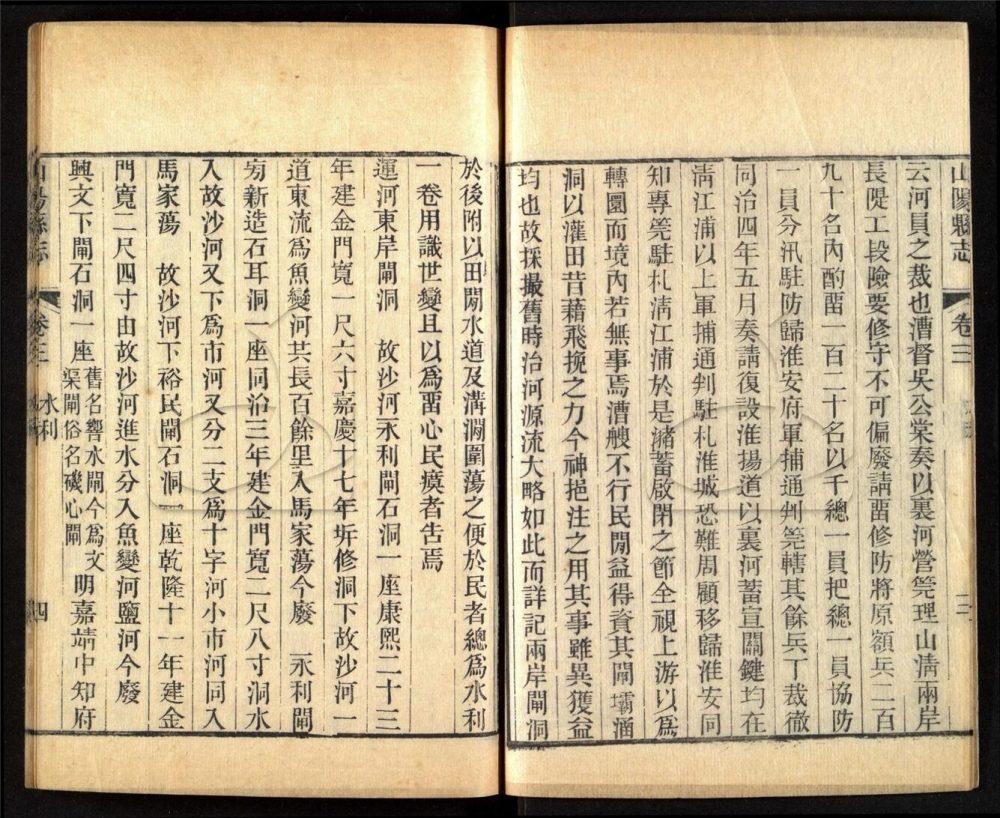 山陽縣志 卷三 三
云河員之裁也漕督吳公棠奏以裏河營筦理山淸兩岸
長隄工段險要修守不可偏廢請畱修防將原額兵二百
九十名內酌畱一百二十名以千總一員把總一員協防
一員分汛駐防歸淮安府軍捕通判筦轄其餘兵丁裁撤
同治四年五月奏請復設淮揚道以裏河蓄宣關鍵均在
淸江浦以上軍捕通判駐札淮城恐難周顧移歸淮安同
知專筦駐札淸江浦於是瀦蓄啟閉之節全視上游以爲
轉圜而境內若無事焉漕艘不行民閒益得資其閘壩涵
洞以灌田昔藉飛挽之力今神挹注之用其事雖異獲益
均也故採撮舊時治河源流大略如此而詳記兩岸閘洞
於後附以田閒水道及溝澗圍蕩之便於民者總爲水利
一卷用識世變且以爲畱心民瘼者告焉
運河東岸閘洞 故沙河永利閘石洞一座康熙二十三
年建金門寬一尺六寸嘉慶十七年拆修洞下故沙河一
道東流爲魚變河共長百餘里入馬家蕩今廢 永利閘
旁新造石耳洞一座同治三年建金門寬二尺八寸洞水
入故沙河又下爲市河又分二支爲十字河小市河同入
馬家蕩 故沙河下裕民閘石洞一座乾隆十一年建金
門寬二尺四寸由故沙河進水分入魚變河鹽河今廢
興文下閘石洞一座舊名響水閘今爲文渠閘俗名磯心閘 明嘉靖中知府
山陽縣志 卷三 水利 四